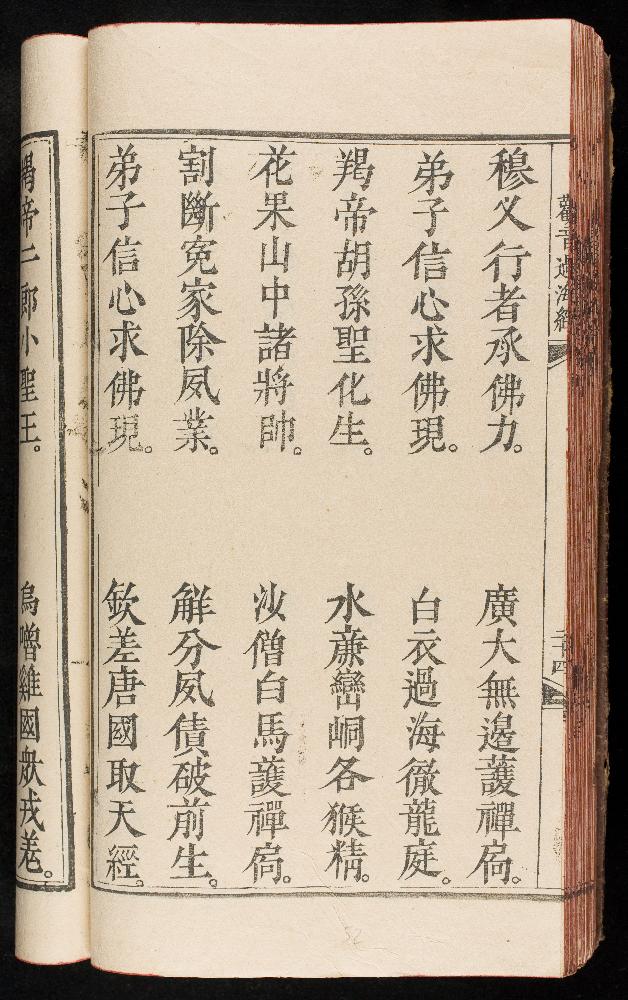 觀音過海經
二十四
穆乂行者承佛力。 廣大無邊護禪扃。
弟子信心求佛現。 白衣過海徹龍庭。
羯帝胡孫聖化生。 水亷巒峒各猴精。
花果山中諸將帥。 沙僧白馬護禪扃。
割斷寃家除夙業。 解分夙債破前生。
弟子信心求佛現。 欽差唐國取天經。
羯帝二郎小聖王。 烏噌雞國衆戎羗。